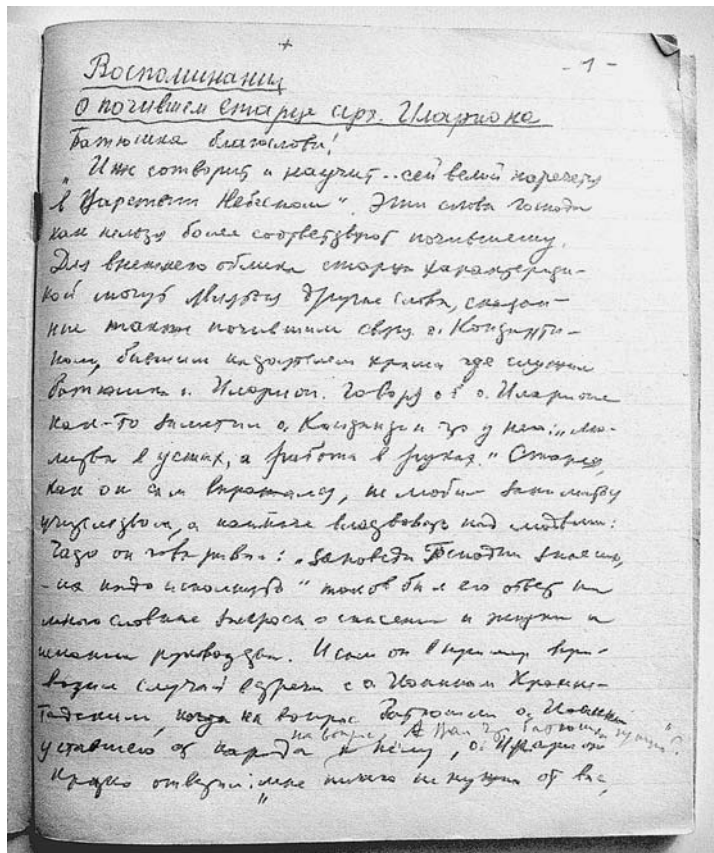 +
- 1 -
Воспоминания
о почившем старце арх. Илариона
Батюшка благослови!
„Иже сотворит и научит.. сей велий наречется
в Царствии Небесном“. Эти слова Господа
как нельзя более соответствуют почившему.
Для внешнего облика старца характеристи-
кой могут явиться другие слова, сказан-
ные также почившим свящ. о. Константи-
ном, бывшим настоятелем храма где служил
батюшка о. Иларион. Говоря об о. Иларионе
как-то заметил о. Константин что у него: „мо-
литва в устах, а работа в руках.“ Старец,
как он сам выражался, не любил заниматься
учительством, а наипаче властвовать над людьми:
Часто он говаривал: „Заповеди Господни знаешь,
- их надо исполнять“ таков был его ответ на
многословные вопросы о спасении и жизни и
искании руководства. И сам он в пример приво-
водил случай встречи с о. Иоанном Кронш-
тадтским, когда на вопрос Батюшки о. Иоанна
на вопрос, А Вам что, батюшка нужно“?
уставшего от народа к нему, о. Иларион
кратко ответил: „мне ничего не нужно от вас,